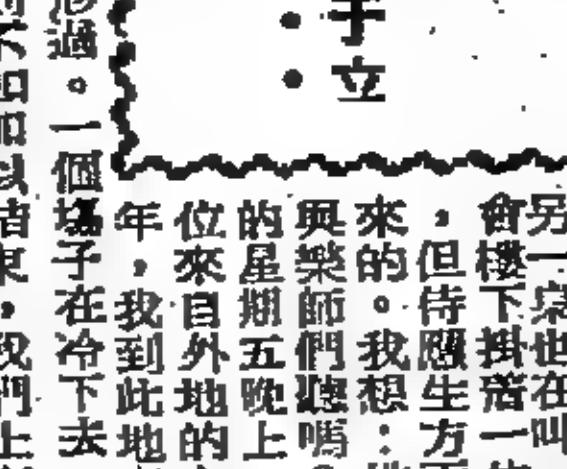 于
立
另一家也在叫
會樓下掛着一
，但侍應生方
來的。我想：
興樂師們聽嗎
的星期五晚上
位來自外地的
年，我到此地
過。一個場子在冷下去
，我們上